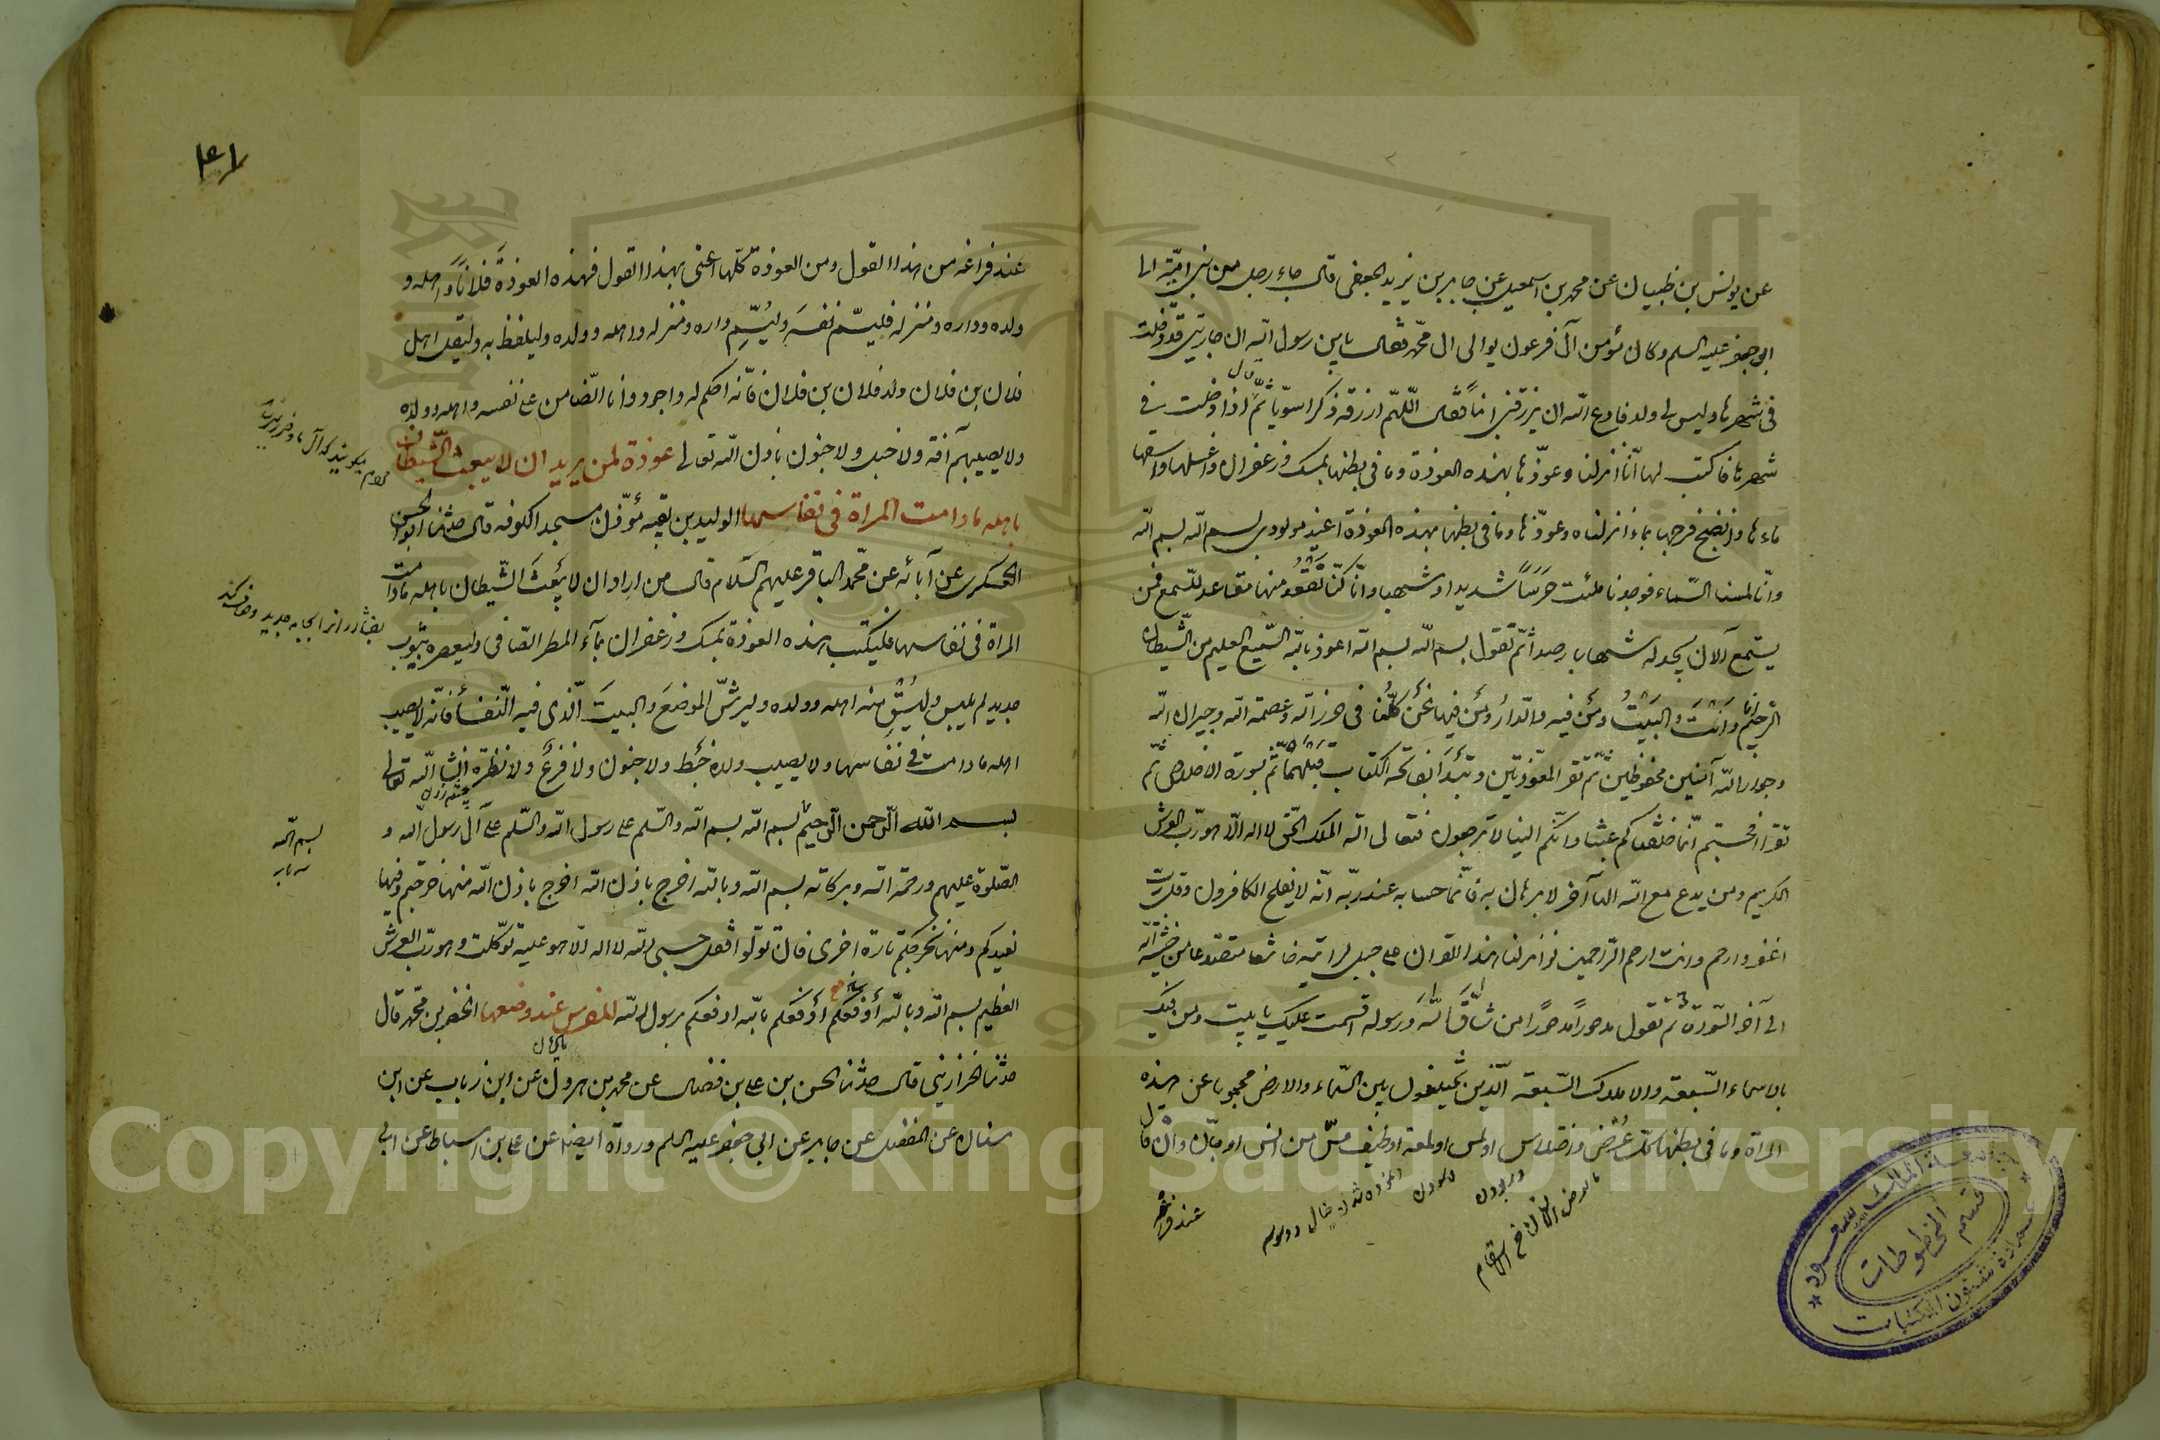 عن يونس بن ظبيان عن محمد بن اسمعيل عن جابر بن يزيد الجعفى قال جاء رجل من بنى امية الى
ابى جعفر عليه السلم وكان مؤمن آل فرعون يوالى ال محمد فقال يا بن رسول الله ان جاريتى قد دخلت
فى شهرها وليس لى ولد فادع الله ان يرزقنى ابنا فقال اللهم ارزقه ذكرا سويا ثم قال اذا دخلت فى
شهرها فاكتب لها انا انزلنا وعوذها بهذه العوذة وما فى بطنها بمسك وزعفران واغسلها واسقها
ماءها وانضح فرجها بماء انزلناه وعوذها وما فى بطنها بهذه العوذة اعيذ مولودى بسم الله بسم الله
وانا لمسنا السماء فوجدناها ملئت حرسا شديدا وشهبا وانا كنا نقعد منها مقاعد للسمع فمن
يستمع الآن يجد له شهابا رصدا ثم تقول بسم الله بسم الله اعوذ بالله السميع العليم من الشيطان
الرجيم انا وانت والبيت ومن فيه والدار ومن فيها نحن كلنا فى حرز الله وعصمة الله وجيران الله
وجوار الله آمنين محفوظين ثم تقرأ المعوذتين وتبدأ بفاتحة الكتاب قبلهما ثم بسورة الاخلاص ثم
تقرأ افحسبتم انما خلقناكم عبثا وانكم الينا لا ترجعون فتعالى الله الملك الحق لا اله الا هو رب العرش
الكريم ومن يدع مع الله الها آخر لا برهان له به فانما حسابه عند ربه انه لا يفلح الكافرون وقل رب
اغفر وارحم وانت ارحم الراحمين لو انزلنا هذا القران على جبل لرايته خاشعا متصدعا من خشية الله
الى آخر السورة ثم تقول مدحورا مدحورا من شاق الله ورسوله اقسمت عليك يا بيت ومن فيك
بالاسماء السبعة والاملاك السبعة الذين يختلفون بين السماء والارض محجوبا عن هذه
المرأة وما فى بطنها كل عرض واختلاس او لمس او لمعة او طيف مس من انس او جان وان قال
عند فراغه
٤١
عند فراغه من هذا القول ومن العوذة كلها اعنى بهذا القول فهذه العوذة فلانا واهله و
ولده وداره ومنزله فليسم نفسه وليسم داره ومنزله واهله وولده وليلفظ به وليقل اهل
فلان بن فلان ولد فلان بن فلان فانه احكم له واجود وانا الضامن على نفسه واهله وولده
ولا يصيبهم آفة ولا خبل ولا جنون باذن الله تعالى عوذة لمن يريد ان لا يعبث الشيطان
باهله ما دامت المراة فى نفاسها الوليد بن بقية مؤذن مسجد الكوفه قال حدثنا ابو الحسن
العسكرى عن آبائه عن محمد الباقر عليهم السلام قال من اراد ان لا يعبث الشيطان باهله ما دامت
المراة فى نفاسها فليكتب هذه العوذة بمسك وزعفران بماء المطر الصافى وليعصره بثوب
جديد لم يلبس وليسق منه اهله وولده وليرش الموضع والبيت الذى فيه النفسا فانه لا يصيب
اهله ما دامت فى نفاسها ولا يصيب ولده خبط ولا جنون ولا فزع ولا نظرة انشا الله تعالى
بسم الله الرحمن الرحيم بسم الله بسم الله والسلم على رسول الله والسلم على آل رسول الله و
الصلوة عليهم ورحمة الله وبركاته بسم الله وبالله اخرج باذن الله اخرج باذن الله منها خرجتم وفيها
نعيدكم ومنها نخرجكم تارة اخرى فان تولوا فقل حسبى الله لا اله الا هو عليه توكلت وهو رب العرش
العظيم بسم الله وبالله ادفعكم ادفعكم بالله ادفعكم برسول الله للفرس عند وضعها الخضر بن محمد قال
حدثنا الخرازينى قال حدثنا الحسن بن على بن فضال عن محمد بن هرون عن ابن رباب عن ابن
سنان عن المفضل عن جابر عن ابى جعفر عليه السلم ورواه ايضا عن على بن اسباط عن ابى
بسم الله
جامعة الملك سعود
قسم المخطوطات
عمادة شئون المكتبات
Copyright © King Saud University
1957